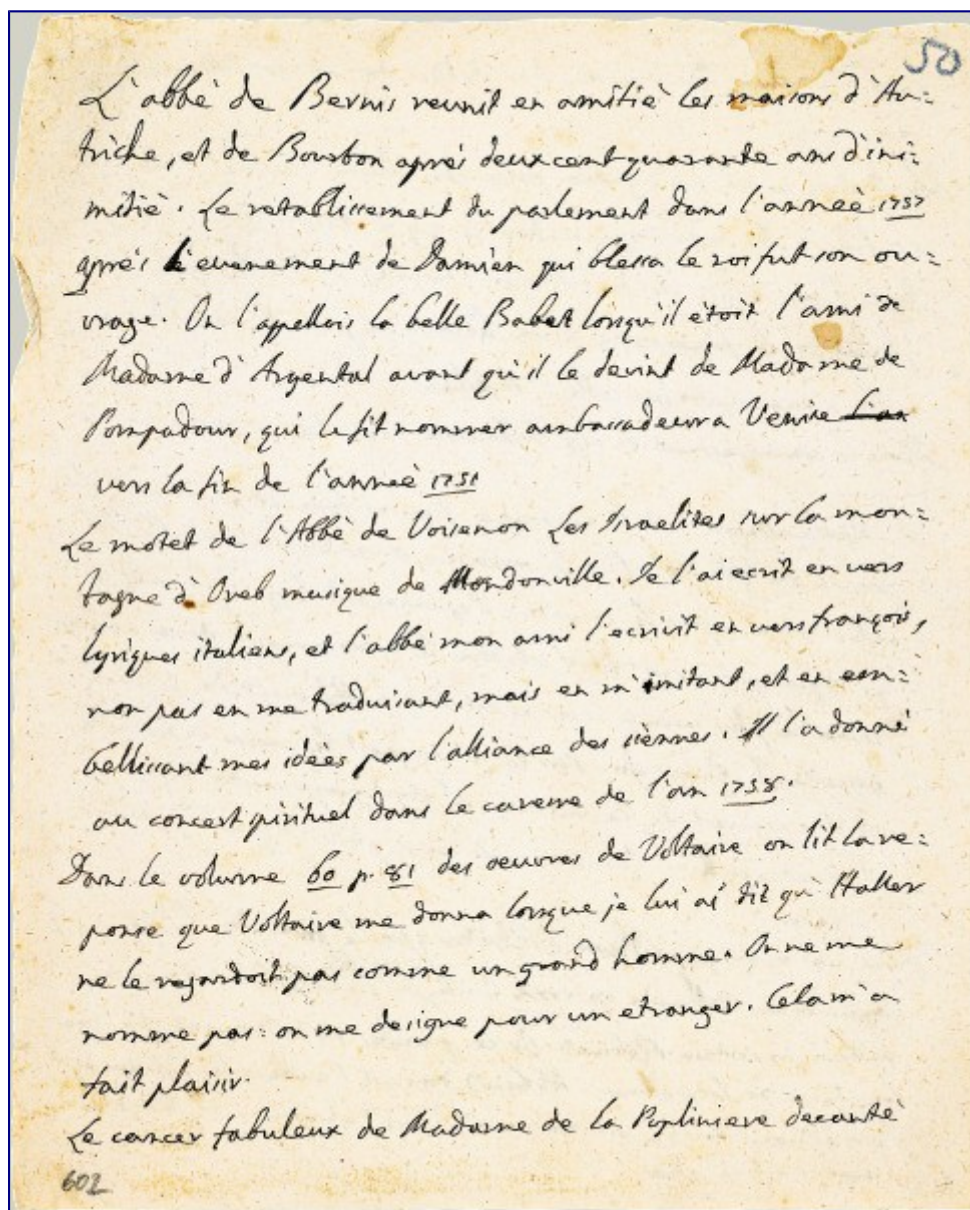 50
L'abbè de Bernis reunit en amitiè les maisons d'Au=
triche, et de Bourbon après deux cent quarante ans d'ini=
mitiè. Le retablissement du parlement dans l'anneè 1757
après l'evenement de Damien qui blessa le roi fut son ou=
vrage. On l'appellois la belle Babet lorsqu'il étoit l'ami de
Madame d'Argental avant qu'il le devint de Madame de
Pompadour, qui le fit nommer ambassadeur a Venise l'an
vers la fin de l'anneè 1751
Le motet de l'Abbè de Voisenon Les Israelites sur la mon=
tagne d'Oreb musique de Mondonville. Je l'ai ecrit en vers
lyriques italiens, et l'abbè mon ami l'ecrivit en vers françois,
non pas en me traduisant, mais en m'imitant, et en em=
bellissant mes idèes par l'alliance des siènnes. Il l'a donnè
au concert spirituel dans le careme de l'an 1758.
Dans le volume 60 p. 81 des oeuvres de Voltaire on lit la re=
ponse que Voltaire me donna lorsque je lui ai dit qu'Haller
ne le regardoit pas comme un grand homme. On ne me
nomme pas: on me designe pour un etranger. Cela m'a
fait plaisir.
Le cancer fabuleux de Madame de la Popliniere decantè
602